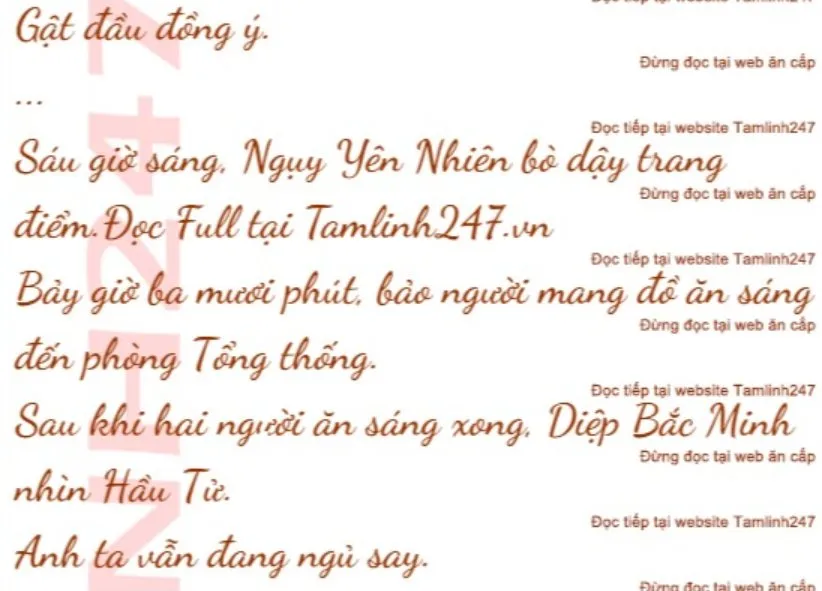 Gật đầu đồng ý.
Đừng đọc tại web ăn cắp
...
Đọc tiếp tại website Tamlinh247
Sáu giờ sáng, Ngụy Yên Nhiên bò dậy trang
Đừng đọc tại web ăn cắp
điểm.Đọc Full tại Tamlinh247.vn
Đọc tiếp tại website Tamlinh247
Bảy giờ ba mươi phút, bảo người mang đồ ăn sáng
Đừng đọc tại web ăn cắp
đến phòng Tổng thống.
Đọc tiếp tại website Tamlinh247
Sau khi hai người ăn sáng xong, Diệp Bắc Minh
Đừng đọc tại web ăn cắp
nhìn Hầu Tử.
Đọc tiếp tại website Tamlinh247
Anh ta vẫn đang ngủ say.
Đừng đọc tại web ăn cắp
NH247